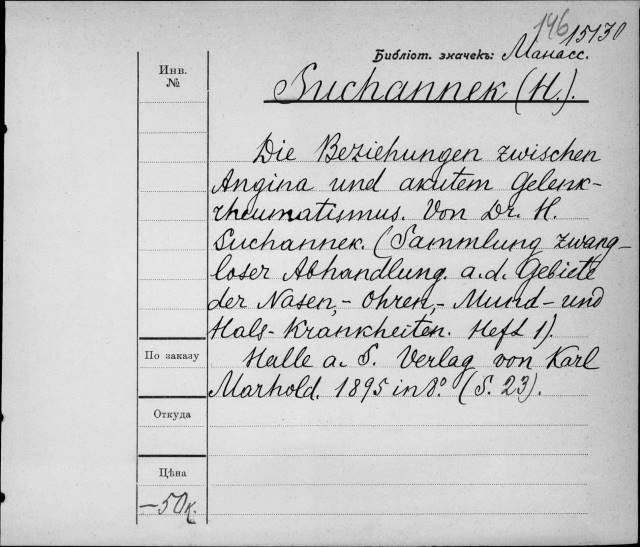 146 15130
Библіот. значекъ: Манасс.
Инв.
№
Suchannek (H.).
Die Beziehungen zwischen
Angina und akutem Gelenk-
rheumatismus. Von Dr. H.
Suchannek. (Sammlung zwang-
loser Abhandlung. a. d. Gebiete
der Nasen,- Ohren,- Mund- und
Hals-Krankheiten. Heft 1).
По заказу
Halle a. S. Verlag von Karl
Marhold. 1895 in 8º. (S. 23).
Откуда
Цѣна
—50к.